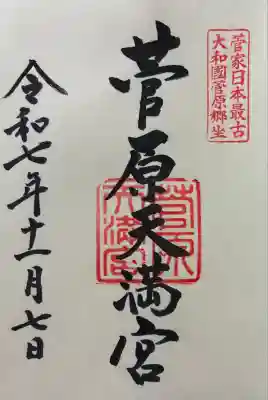 菅家日本最古
大和國菅原郷坐
菅原天満宮
菅原天満宮
令和七年十一月七日